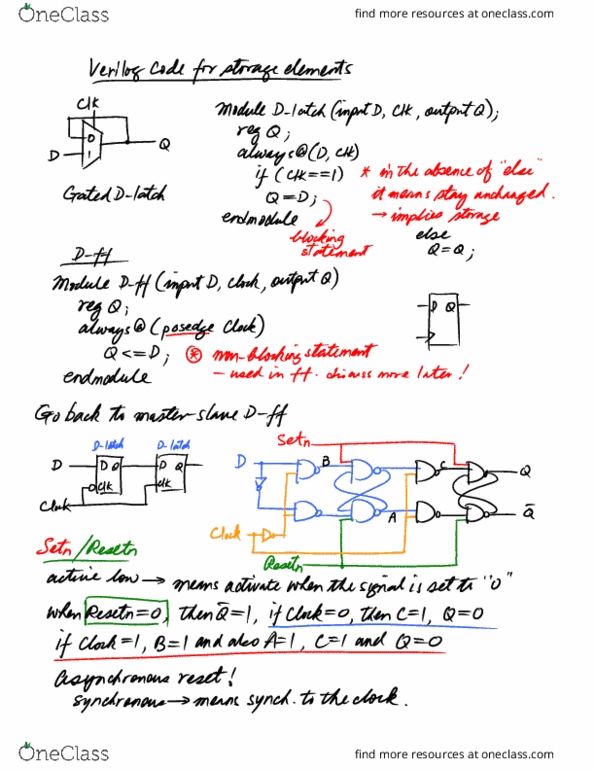 OneClass
find more resources at oneclass.com
Verilog Code for storage elements
Clk
0
D
1
Q
Gated D-latch
Module D-latch (input D, Clk, output Q);
reg Q;
always@(D, Clk)
if (Clk==1)
Q=D;
endmodule
* in the absence of "else"
it means stay unchanged.
→ implies storage
else
Q=Q;
blocking
statement
D-ff
Module D-ff (input D, clock, output Q)
reg Q;
always@(posedge Clock)
Q<=D;
endmodule
* non-blocking statement
- used in ff. discuss more later!
D Q
Go back to master-slave D-ff
D-latch
D-latch
D
D Q
Clk
D Q
Clk
Clock
Setn
D
B
C
Q
A
Q̅
Clock
Resetn
Setn/Resetn
active low → means activate when the signal is set to "0"
when Resetn=0, then Q̅=1, if Clock=0, then C=1, Q=0
if Clock=1, B=1 and also A=1, C=1 and Q=0
asynchronous reset!
synchronous → means synch. to the clock.
OneClass
find more resources at oneclass.com